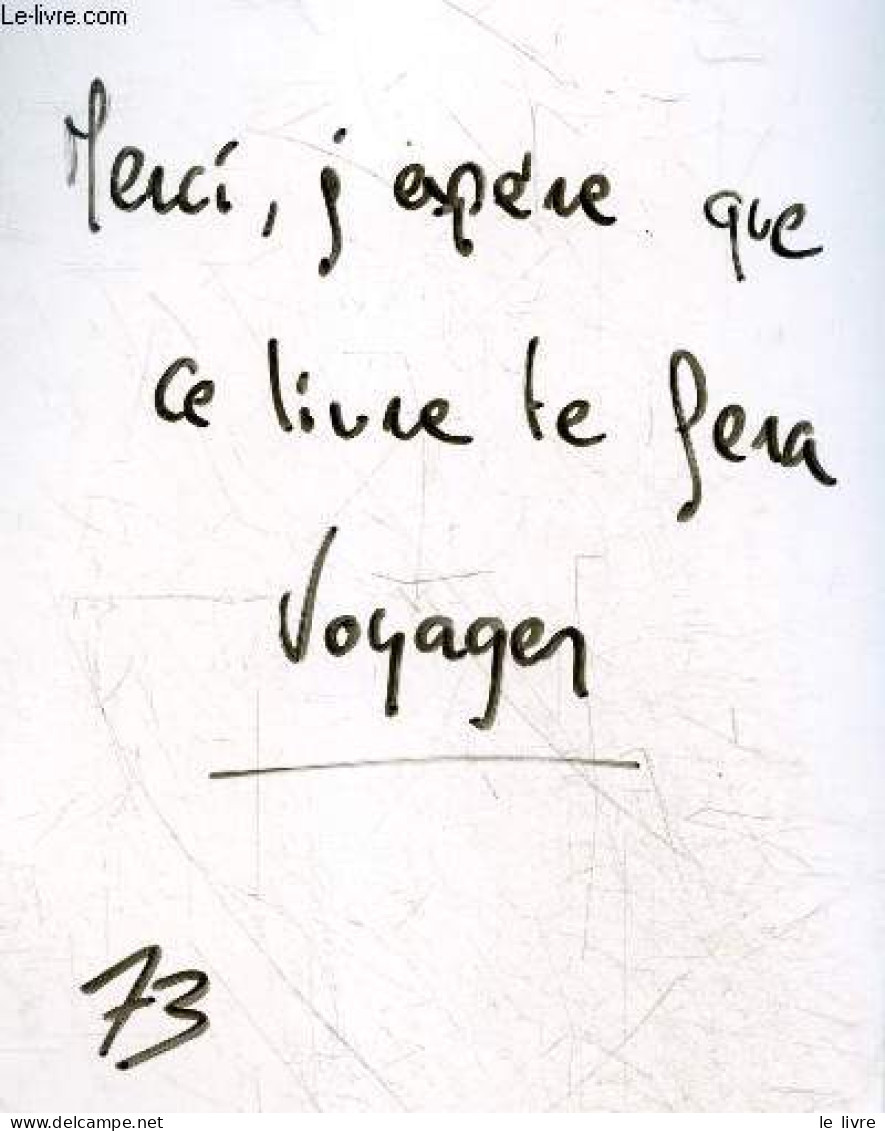 Le-livre.com
Merci, j'espère que
ce livre te fera
Voyager
73
le livre